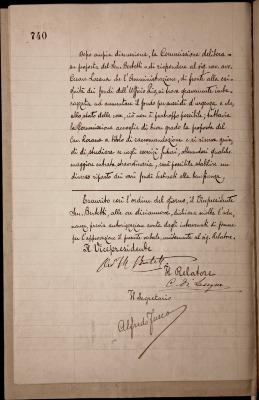 740
Dopo ampia discussione, la Commissione delibera
su proposta del Sen. Bertetti di rispondere al sig. avv.
Cesare Losana che l'Amministrazione, di fronte alla esi-
guità dei fondi dell'Ufficio Lig, si trova gravemente imba-
razzata ad aumentare il fondo pei sussidi d'urgenza e che,
allo stato delle cose, ciò non è purtroppo possibile; tuttavia
la Commissione accoglie di buon grado la proposta del
Cav. Losana a titolo di raccomandazione e si riserva quin-
di di studiare se negli esercizi futuri, ottenendosi qualche
maggiore entrata straordinaria, sarà possibile stabilire un
diverso riparto dei vari fondi destinati alla beneficenza.
Esaurito così l'ordine del giorno, il Vicepresidente
Sen. Bertetti, alle ore diciannove, dichiara sciolta l'adu-
nanza, previa autorizzazione avuta dagli intervenuti di firmare
per l'approvazione il presente verbale, unitamente al sig. Relatore.
Il Vicepresidente
Il Relatore
Il Segretario
Alfredo Fusco